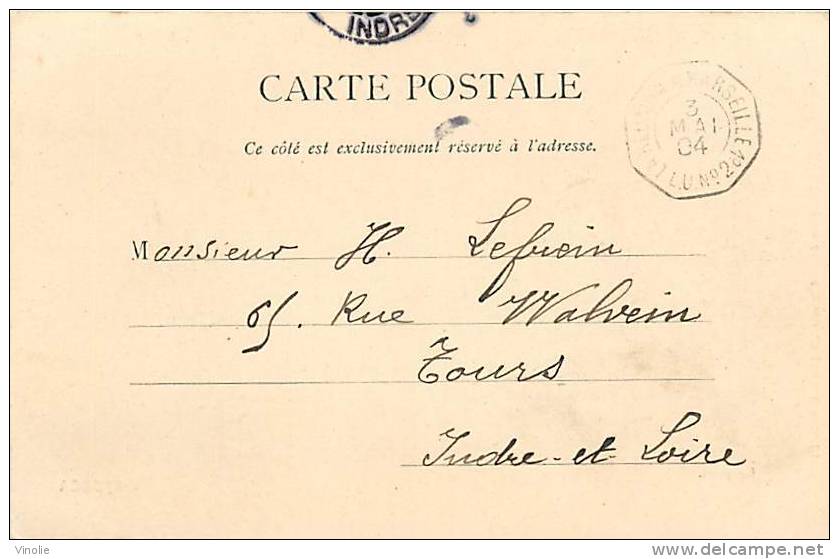 INDRE
CARTE POSTALE
Ce côté est exclusivement réservé à l'adresse.
MARSEILLE
3
MAI
04
L.U.Nº2
Monsieur H. Lefrein
65. Rue Walvein
Tours
Indre-et-Loire
Vinolie
delcampe.net